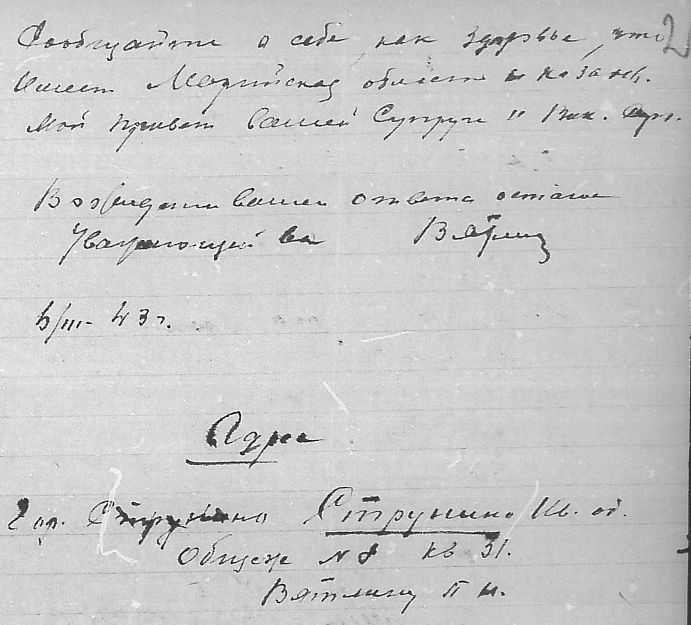 Сообщайте о себе, как здоровье, что 2
Марийская область и Казань.
Мой привет Вашей Супруге и
В ожидании вашего ответа остаюсь
Уважающий вас Вятлин
5/III - 43 г.
Адрес
гор. Струнино Струнино Ив. об.
Общеж № 8 кв 31.
Вятлину П н.